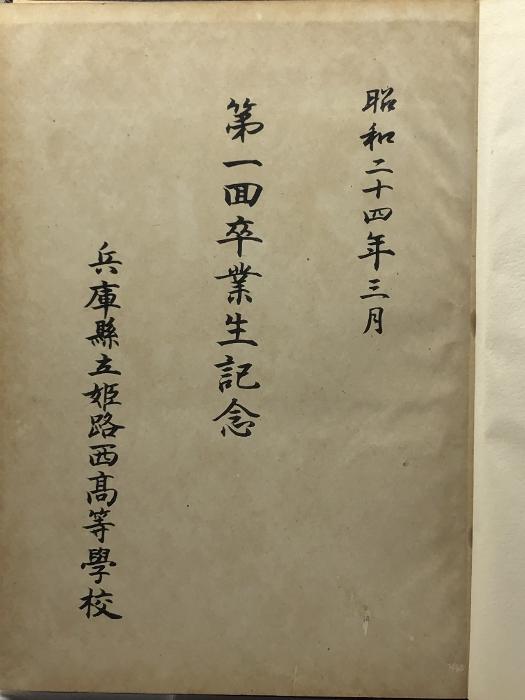 昭和二十四年三月
第一囬卒業生記念
兵庫縣立姫路西高等學校